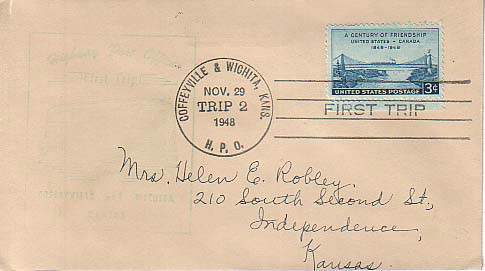 A CENTURY OF FRIENDSHIP
UNITED STATES - CANADA
1848-1948
UNITED STATES POSTAGE 3¢
COFFEYVILLE & WICHITA, KANS.
NOV. 29
TRIP 2
1948
H. P. O.
FIRST TRIP
Mrs. Helen E. Robley
210 South Second St.,
Independence,
Kansas.